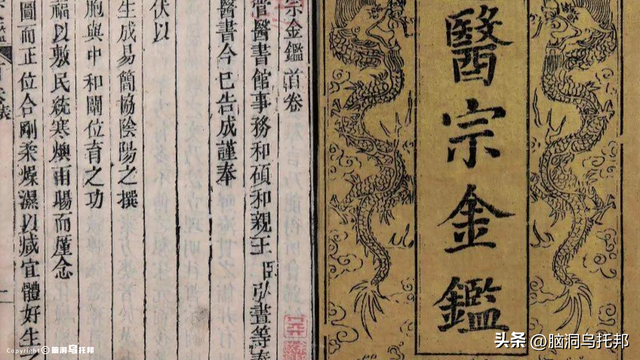 醫宗金鑑
宗金鑑首卷
管醫書館事務和碩和親王臣弘晝等奉
醫書今巳告成謹奉
伏以
生成易簡協陰陽之撰
胞與中和闢位育之功
福以敷民寒燠雨暘而廑念
圖而正位合剛柔燥濕以咸宜體好生
表
一
Copyright © 脑洞乌托邦
头条 @脑洞乌托邦